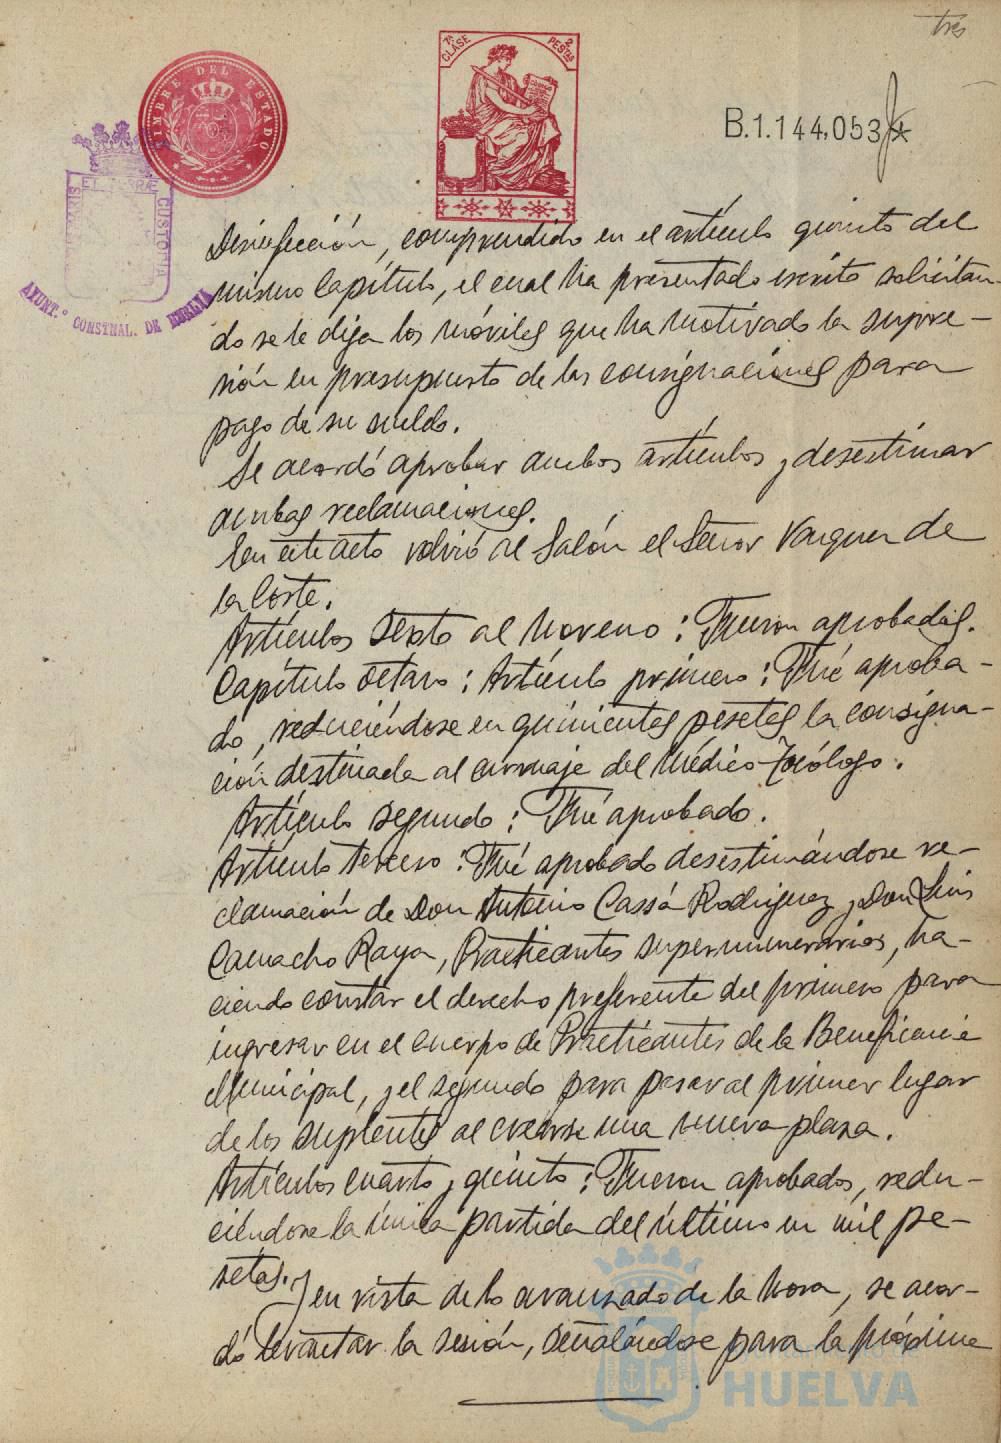 tres
TIMBRE DEL ESTADO
7ª CLASE
2 PESTAS
B.1.144,053 *
PORTUS MARIS
ET TERRÆ
CUSTODIA
AYUNT.º CONSTNAL. DE HUELVA
Desinfección, comprendido en el artículo quinto del
mismo Capítulo, el cual ha presentado escrito solicitan-
do se le diga los móviles que ha motivado la supre-
sión en presupuesto de las consignaciones para
pago de su sueldo.
Se acordó aprobar ambos artículos y desestimar
ambas reclamaciones.
En este acto volvió al Salón el Señor Vazquez de
la Corte.
Artículos Sexto al Noveno: Fueron aprobados.
Capítulo Octavo: Artículo primero: Fué aproba-
do, reduciéndose en quinientas pesetas la consigna-
ción destinada al carruaje del Médico Tocólogo.
Artículo segundo: Fué aprobado.
Artículo tercero: Fué aprobado desestimándose re-
clamación de Don Antonio Cassá Rodriguez y Don Luis
Camacho Raya, Practicantes supernumerarios, ha-
ciendo constar el derecho preferente del primero para
ingresar en el cuerpo de Practicantes de la Beneficencia
Municipal, y el segundo para pasar al primer lugar
de los suplentes al crearse una nueva plaza.
Artículos cuarto y quinto: Fueron aprobados, redu-
ciéndose la única partida del último en mil pe-
setas.
Y en vista de lo avanzado de la hora, se acor-
dó levantar la sesión, señalándose para la próxima
HUELVA